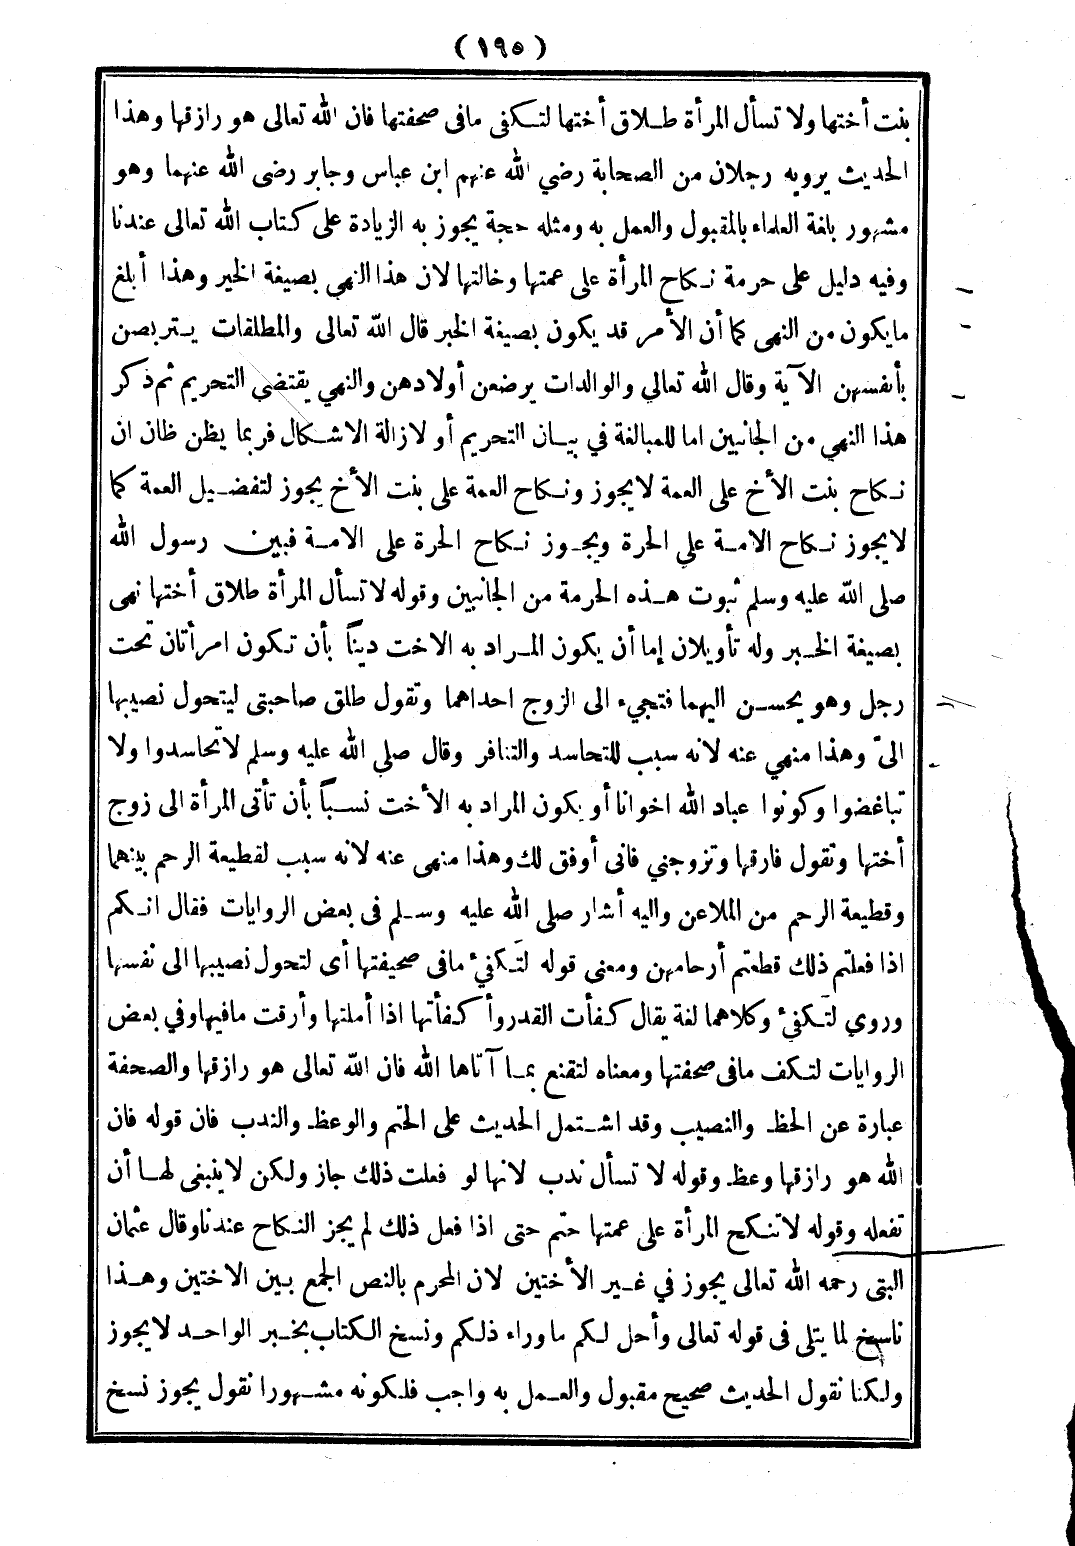 (١٩٥)
بنت أختها ولا تسأل المرأة طلاق أختها لتكفئ مافى صحفتها فان الله تعالى هو رازقها وهذا
الحديث يرويه رجلان من الصحابة رضي الله عنهم ابن عباس وجابر رضى الله عنهما وهو
مشهور بلغة العلماء بالمقبول والعمل به ومثله حجة يجوز به الزيادة على كتاب الله تعالى عندنا
وفيه دليل على حرمة نكاح المرأة على عمتها وخالتها لان هذا النهى بصيغة الخبر وهذا أبلغ
مايكون من النهى كما أن الأمر قد يكون بصيغة الخبر قال الله تعالى والمطلقات يتربصن
بأنفسهن الآية وقال الله تعالي والوالدات يرضعن أولادهن والنهي يقتضى التحريم ثم ذكر
هذا النهي من الجانبين اما للمبالغة في بيان التحريم أو لازالة الاشكال فربما يظن ظان ان
نكاح بنت الأخ على العمة لايجوز ونكاح العمة على بنت الأخ يجوز لتفضيل العمة كما
لايجوز نكاح الامة علي الحرة ويجوز نكاح الحرة على الامة فبين رسول الله
صلى الله عليه وسلم ثبوت هذه الحرمة من الجانبين وقوله لاتسأل المرأة طلاق أختها نهى
بصيغة الخبر وله تأويلان إما أن يكون المراد به الاخت دينًا بأن تكون امرأتان تحت
رجل وهو يحسن اليهما فتجيء الى الزوج احداهما وتقول طلق صاحبتى ليتحول نصيبها
الىّ وهذا منهي عنه لانه سبب للتحاسد والتنافر وقال صلي الله عليه وسلم لاتحاسدوا ولا
تباغضوا وكونوا عباد الله اخوانا أو يكون المراد به الأخت نسبًا بأن تأتى المرأة الى زوج
أختها وتقول فارقها وتزوجني فانى أوفق لك وهذا منهى عنه لانه سبب لقطيعة الرحم بينهما
وقطيعة الرحم من الملاعن واليه أشار صلى الله عليه وسلم فى بعض الروايات فقال انكم
اذا فعلتم ذلك قطعتم أرحامهن ومعنى قوله لتَكفئ مافى صحيفتها أى لتحول نصيبها الى نفسها
وروي لتَكفئ وكلاهما لغة يقال كفأت القدر وأ كفأتها اذا أملتها وأرقت مافيها وفي بعض
الروايات لتكف مافى صحفتها ومعناه لتقنع بما آتاها الله فان الله تعالى هو رازقها والصحفة
عبارة عن الحظ والنصيب وقد اشتمل الحديث على الحتم والوعظ والندب فان قوله فان
الله هو رازقها وعظ وقوله لا تسأل ندب لانها لو فعلت ذلك جاز ولكن لاينبغى لها أن
تفعله وقوله لاتنكح المرأة على عمتها حتم حتى اذا فعل ذلك لم يجز النكاح عندنا وقال عثمان
البتى رحمه الله تعالى يجوز في غير الأختين لان المحرم بالنص الجمع بين الاختين وهذا
ناسخ لما يتلى فى قوله تعالى وأحل لكم ماوراء ذلكم ونسخ الكتاب بخبر الواحد لايجوز
ولكنا نقول الحديث صحيح مقبول والعمل به واجب فلكونه مشهورا نقول يجوز نسخ